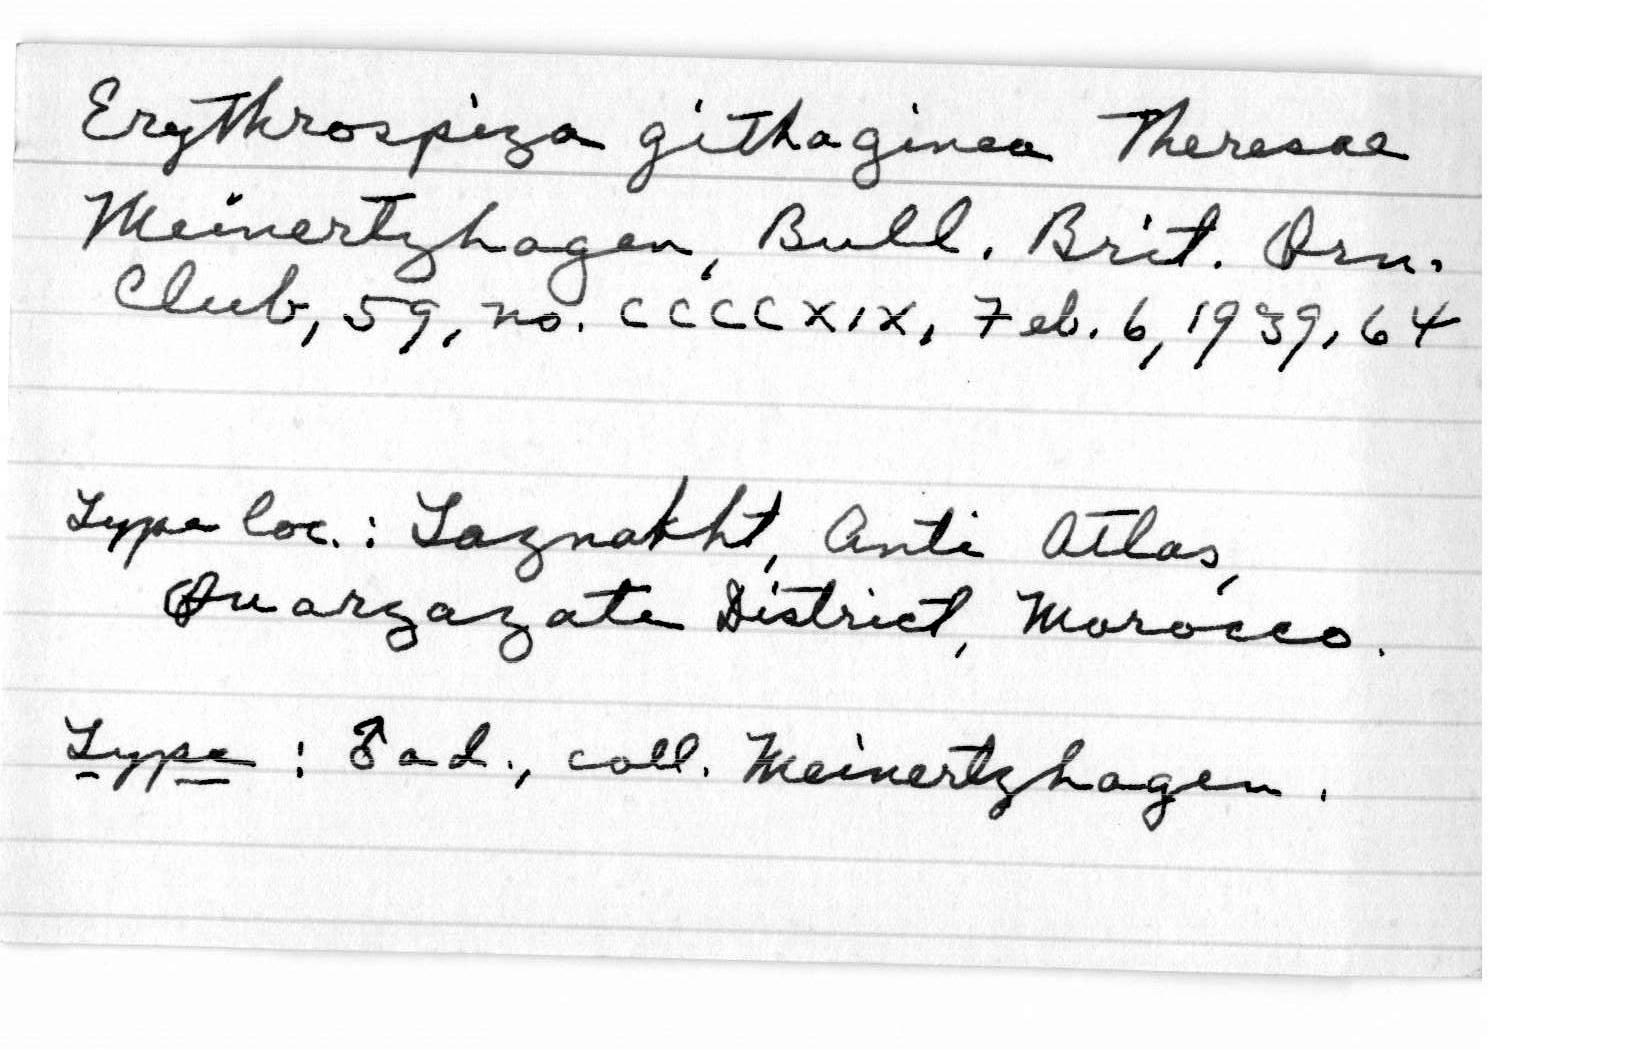 Erythrospiza githaginea Theresae
Meinertzhagen, Bull. Brit. Orn.
Club, 59, no. CCCCXIX, Feb. 6, 1939, 64
Type loc.: Taznakht, Anti Atlas,
Ouarzazate District, Morocco.
Type: ♂ ad., coll. Meinertzhagen.